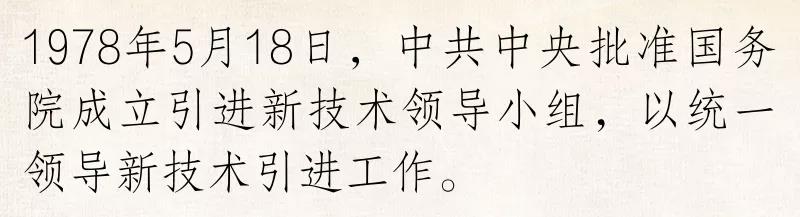 1978年5月18日，中共中央批准国务
院成立引进新技术领导小组，以统一
领导新技术引进工作。